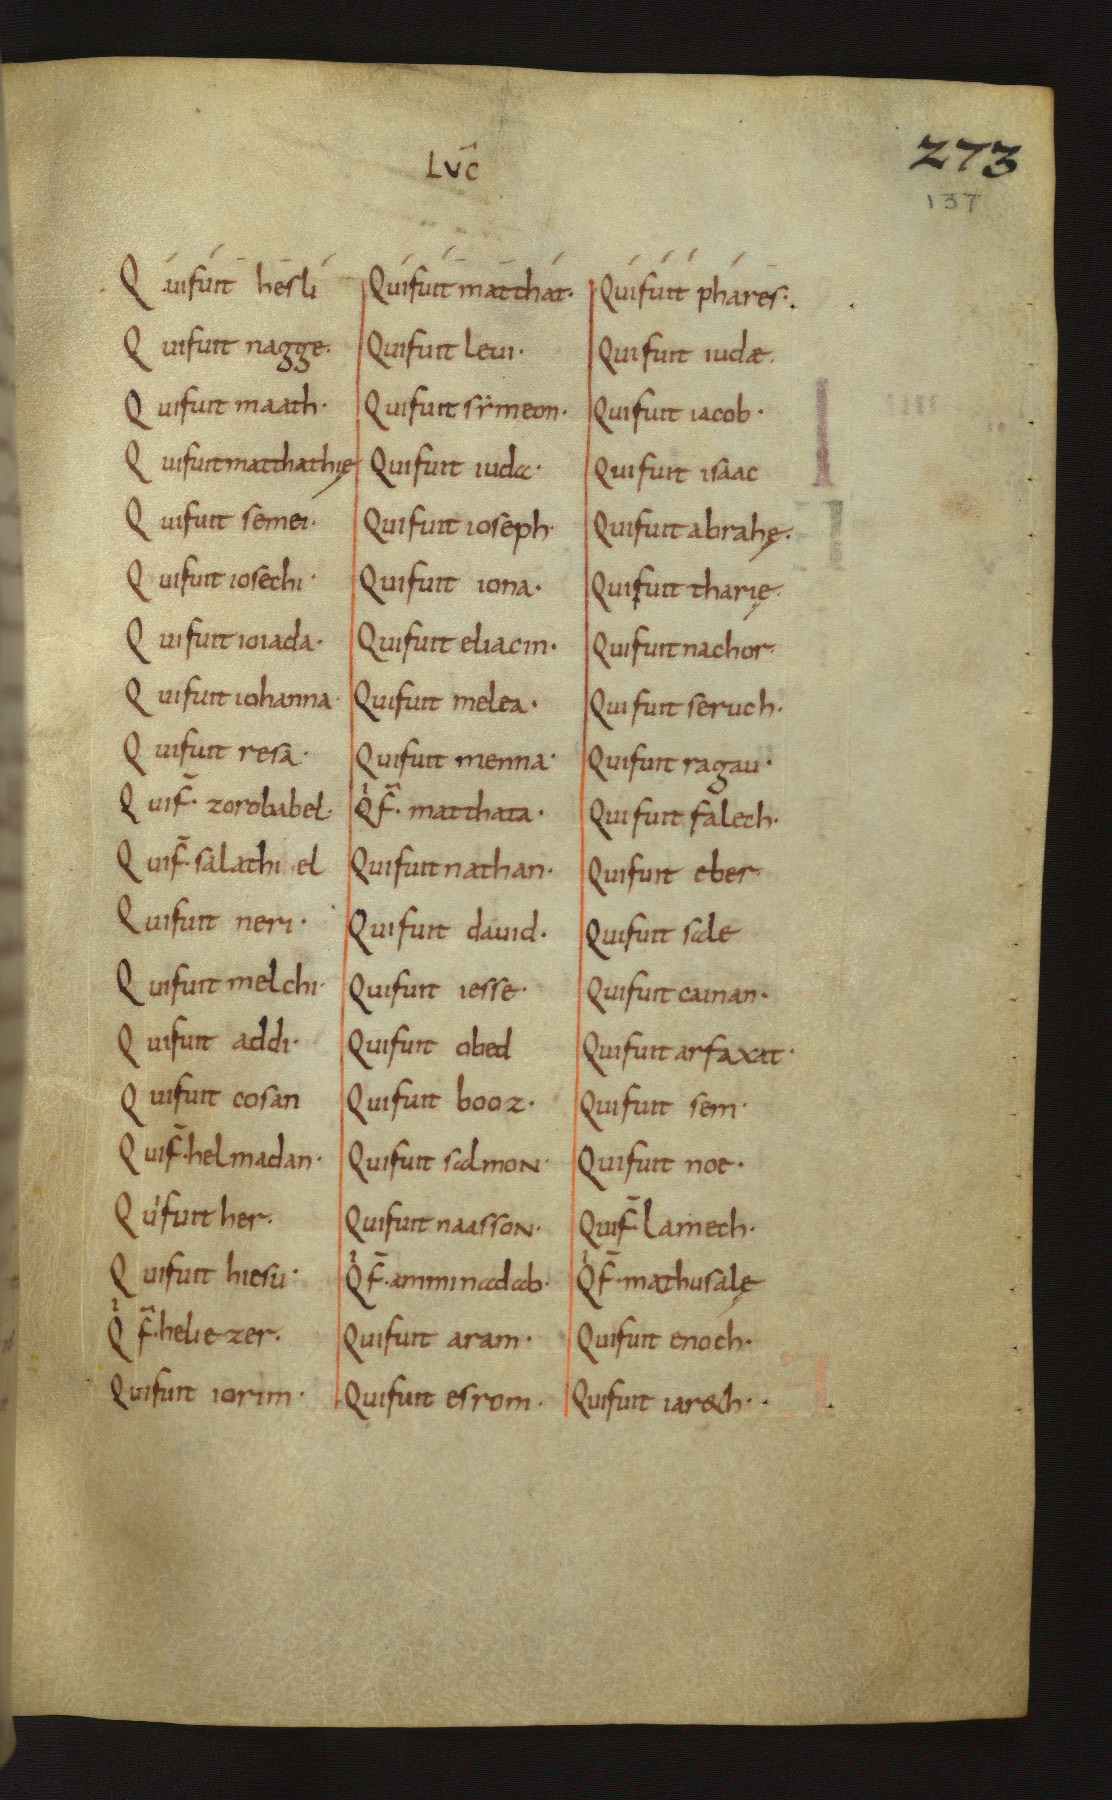 LVC
273
137
Qui fuit hesli
Qui fuit nagge.
Qui fuit maath.
Qui fuit matthathię
Qui fuit semei.
Qui fuit iosechi.
Qui fuit ioiada.
Qui fuit iohanna.
Qui fuit resa.
Qui f̄. zorobabel.
Qui f̄. salathi el
Qui fuit neri.
Qui fuit melchi.
Qui fuit addi.
Qui fuit cosan
Qui f̄. helmadan.
Qui fuit her.
Qui fuit hiesu.
Qͥ f̄. heliezer.
Qui fuit iorim.
Qui fuit matthat.
Qui fuit leui.
Qui fuit sẏmeon.
Qui fuit iuda.
Qui fuit ioseph.
Qui fuit iona.
Qui fuit eliacin.
Qui fuit melea.
Qui fuit menna.
Qͥ f̄. matthata.
Qui fuit nathan.
Qui fuit dauid.
Qui fuit iesse.
Qui fuit obed
Qui fuit booz.
Qui fuit salmon.
Qui fuit naasson.
Qͥ f̄. amminadab.
Qui fuit aram.
Qui fuit esrom.
Qui fuit phares.
Qui fuit iudæ.
Qui fuit iacob.
Qui fuit isaac
Qui fuit abrahę.
Qui fuit tharię.
Qui fuit nachor.
Qui fuit seruch.
Qui fuit ragau.
Qui fuit falech.
Qui fuit eber.
Qui fuit sale
Qui fuit cainan.
Qui fuit arfaxat.
Qui fuit sem.
Qui fuit noe.
Qui f̄. lamech.
Qͥ f̄. mathusalę
Qui fuit enoch.
Qui fuit iar&h.